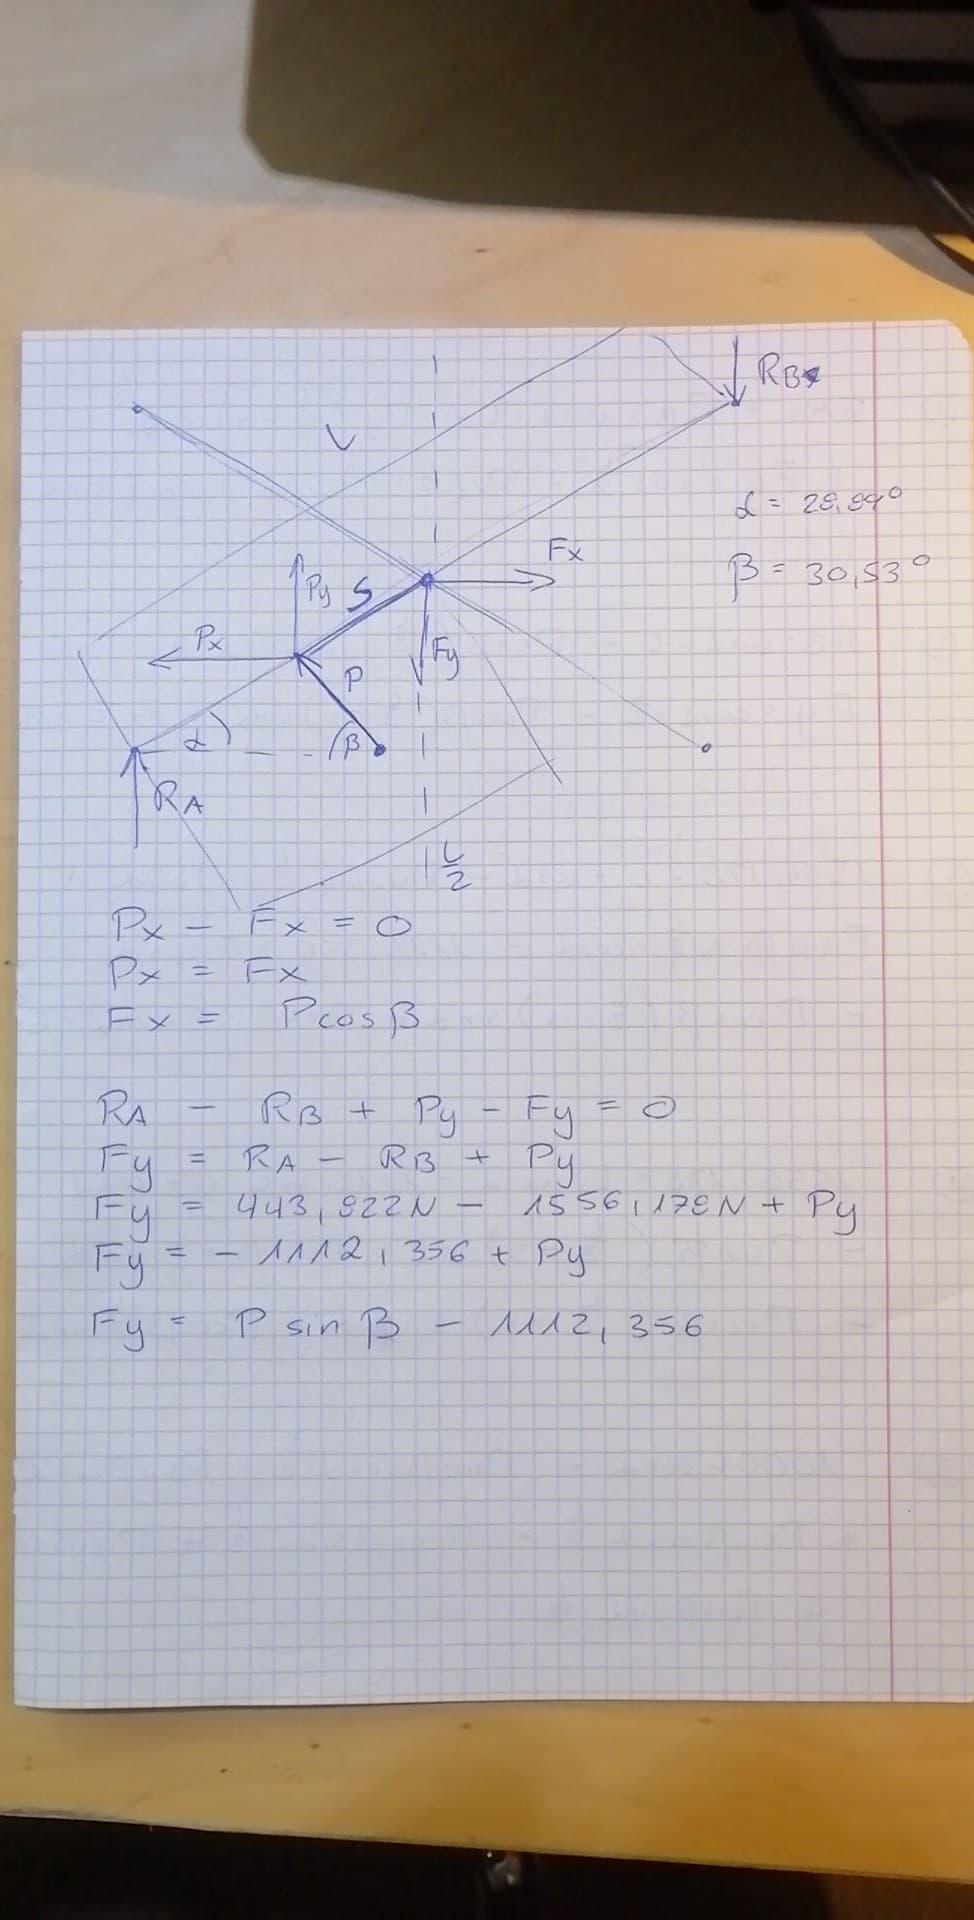 RB
L
α = 28,94°
Fx
β = 30,53°
Py
S
Px
Fy
P
α
β
RA
L/2
Px - Fx = 0
Px = Fx
Fx = P cos β
RA - RB + Py - Fy = 0
Fy = RA - RB + Py
Fy = 443,822N - 1556,178N + Py
Fy = - 1112,356 + Py
Fy = P sin β - 1112,356